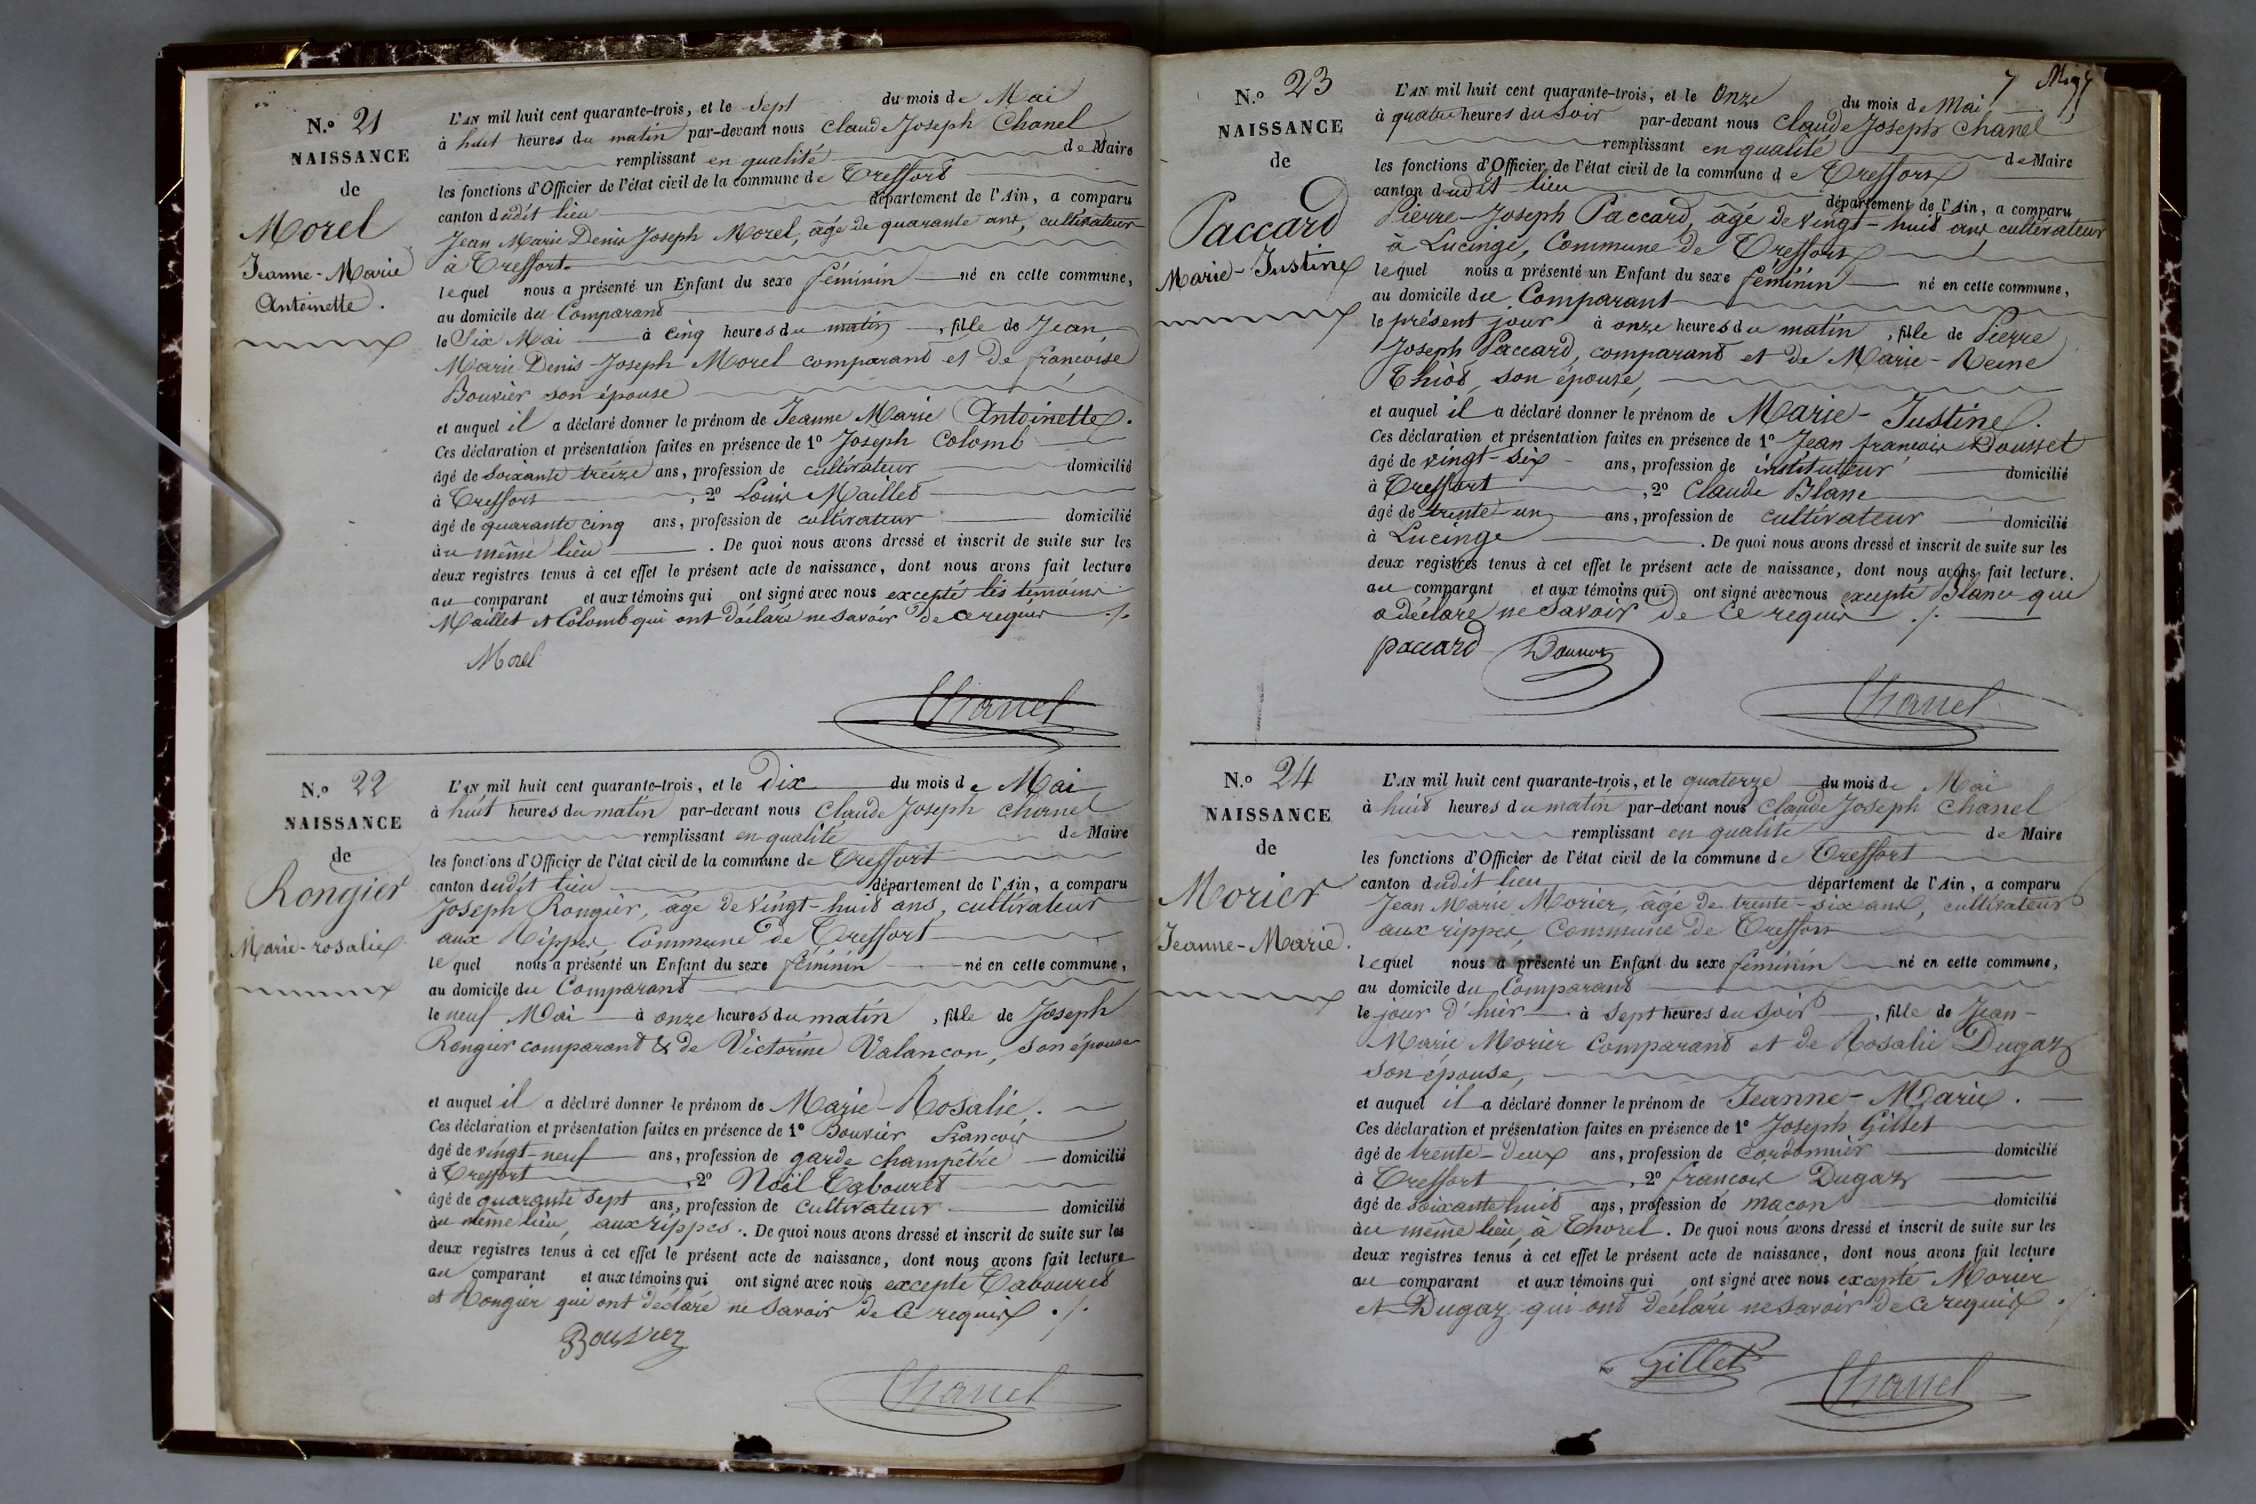 N.o 21
NAISSANCE
de
Morel
Jeanne-Marie
Antoinette.
L'AN mil huit cent quarante-trois, et le Sept du mois de Mai
à huit heures du matin par-devant nous Claude Joseph Chanel
remplissant en qualité de Maire
les fonctions d'Officier de l'état civil de la commune de Treffort
canton dudit lieu département de l'Ain, a comparu
Jean Marie Denis Joseph Morel, âgé de quarante ans, cultivateur
à Treffort.
lequel nous a présenté un Enfant du sexe féminin né en cette commune,
au domicile du Comparant
le Six Mai à Cinq heures du matin, fille de Jean
Marie Denis Joseph Morel comparant et de francoise
Bouvier son épouse
et auquel il a déclaré donner le prénom de Jeanne Marie Antoinette.
Ces déclaration et présentation faites en présence de 1º Joseph Colomb
âgé de Soixante treize ans, profession de cultivateur domicilié
à Treffort, 2º Louis Maillet
âgé de quarante cinq ans, profession de cultivateur domicilié
au même lieu. De quoi nous avons dressé et inscrit de suite sur les
deux registres tenus à cet effet le présent acte de naissance, dont nous avons fait lecture
au comparant et aux témoins qui ont signé avec nous excepté les témoins
Maillet et Colomb qui ont déclaré ne savoir de ce requis ./.
Morel
Chanel
N.o 22
NAISSANCE
de
Rongier
Marie-rosalie
L'AN mil huit cent quarante-trois, et le Dix du mois de Mai
à huit heures du matin par-devant nous Claude Joseph Chanel
remplissant en qualité de Maire
les fonctions d'Officier de l'état civil de la commune de Treffort
canton dudit lieu département de l'Ain, a comparu
Joseph Rongier, âgé de Vingt-huit ans, cultivateur
aux Rippes Commune de Treffort
lequel nous a présenté un Enfant du sexe féminin né en cette commune,
au domicile du Comparant
le neuf Mai à onze heures du matin, fille de Joseph
Rongier comparant & de Victorine Valançon, son épouse
et auquel il a déclaré donner le prénom de Marie-Rosalie.
Ces déclaration et présentation faites en présence de 1º Bouvier francois
âgé de vingt-neuf ans, profession de garde champêtre domicilié
à Treffort, 2º Noël Cabouret
âgé de quarante sept ans, profession de cultivateur domicilié
au même lieu, aux rippes. De quoi nous avons dressé et inscrit de suite sur les
deux registres tenus à cet effet le présent acte de naissance, dont nous avons fait lecture
au comparant et aux témoins qui ont signé avec nous excepté Cabouret
et Rongier qui ont déclaré ne savoir de ce requis ./.
Bouvier
Chanel
7
N.o 23
NAISSANCE
de
Paccard
Marie-Justine
L'AN mil huit cent quarante-trois, et le Onze du mois de Mai
à quatre heures du Soir par-devant nous Claude Joseph Chanel
remplissant en qualité de Maire
les fonctions d'Officier de l'état civil de la commune de Treffort
canton dudit lieu département de l'Ain, a comparu
Pierre-Joseph Paccard, âgé de vingt-huit ans cultivateur
à Lucinge, Commune de Treffort
lequel nous a présenté un Enfant du sexe féminin né en cette commune,
au domicile du Comparant
le présent jour à onze heures du matin, fille de Pierre
Joseph Paccard, comparant et de Marie-Reine
Thiot, son épouse,
et auquel il a déclaré donner le prénom de Marie-Justine.
Ces déclaration et présentation faites en présence de 1º Jean francois Dousset
âgé de vingt-six ans, profession de instituteur domicilié
à Treffort, 2º Claude Blanc
âgé de trente un ans, profession de cultivateur domicilié
à Lucinge. De quoi nous avons dressé et inscrit de suite sur les
deux registres tenus à cet effet le présent acte de naissance, dont nous avons fait lecture.
au comparant et aux témoins qui ont signé avec nous excepté Blanc qui
a déclaré ne savoir de ce requis ./.
paccard
Chanel
N.o 24
NAISSANCE
de
Morier
Jeanne-Marie.
L'AN mil huit cent quarante-trois, et le quatorze du mois de Mai
à huit heures du matin par-devant nous Claude Joseph Chanel
remplissant en qualité de Maire
les fonctions d'Officier de l'état civil de la commune de Treffort
canton dudit lieu département de l'Ain, a comparu
Jean Marie Morier, âgé de trente-six ans, cultivateur
aux rippes, Commune de Treffort
lequel nous a présenté un Enfant du sexe féminin né en cette commune,
au domicile du Comparant
le jour d'hier à Sept heures du Soir, fille de Jean-
Marie Morier Comparant et de Rosalie Dugaz
son épouse,
et auquel il a déclaré donner le prénom de Jeanne-Marie.
Ces déclaration et présentation faites en présence de 1º Joseph Gillet
âgé de trente-deux ans, profession de Cordonnier domicilié
à Treffort, 2º francois Dugaz
âgé de soixante huit ans, profession de maçon domicilié
au même lieu, à Thorel. De quoi nous avons dressé et inscrit de suite sur les
deux registres tenus à cet effet le présent acte de naissance, dont nous avons fait lecture
au comparant et aux témoins qui ont signé avec nous excepté Morier
et Dugaz qui ont déclaré ne savoir de ce requis ./.
Gillet
Chanel